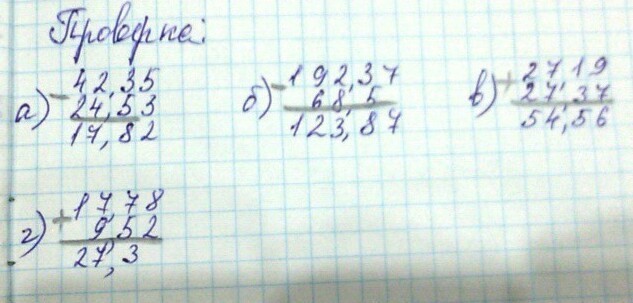 Проверка:
а) - 42,35
24,53
17,82
б) - 192,37
68,5
123,87
в) + 27,19
27,37
54,56
г) + 17,78
9,52
27,3